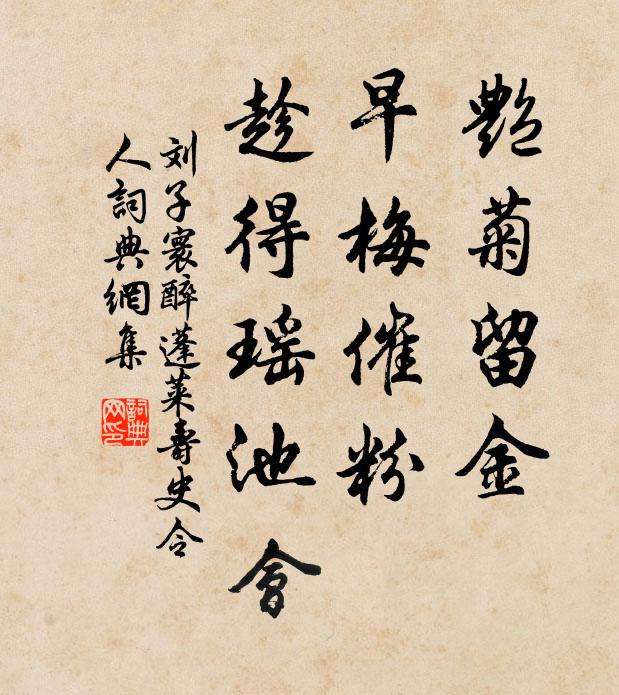 艷菊留金
早梅催粉
趁得瑶池會
刘子寰醉蓬莱壽史令
人詞典網集
詞典
网印